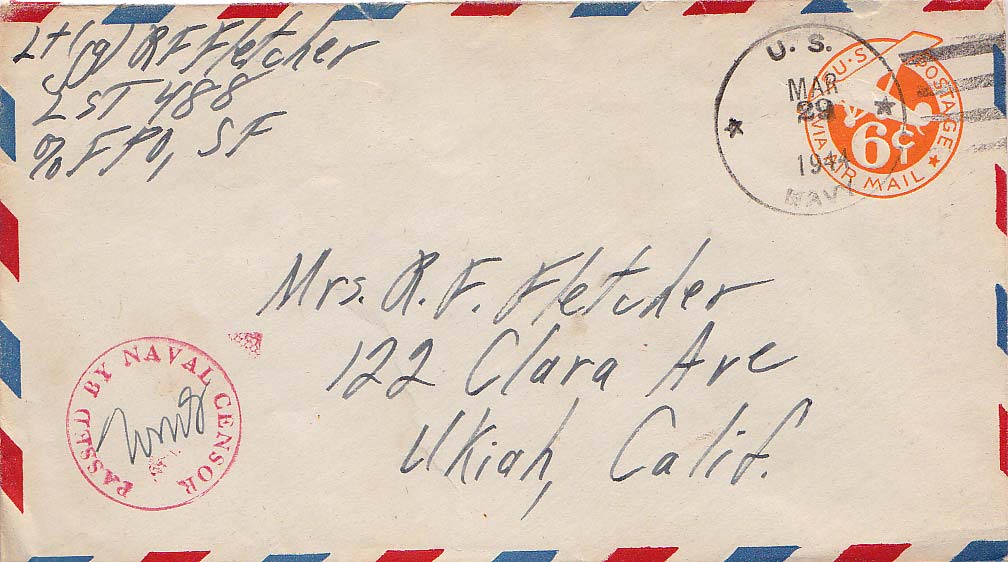 Lt (jg) R F Fletcher
LST 488
% FPO, SF
U. S.
MAR
29
1944
NAVY
U·S POSTAGE
VIA AIR MAIL
6¢
Mrs. R. F. Fletcher
122 Clara Ave
Ukiah, Calif.
PASSED BY NAVAL CENSOR